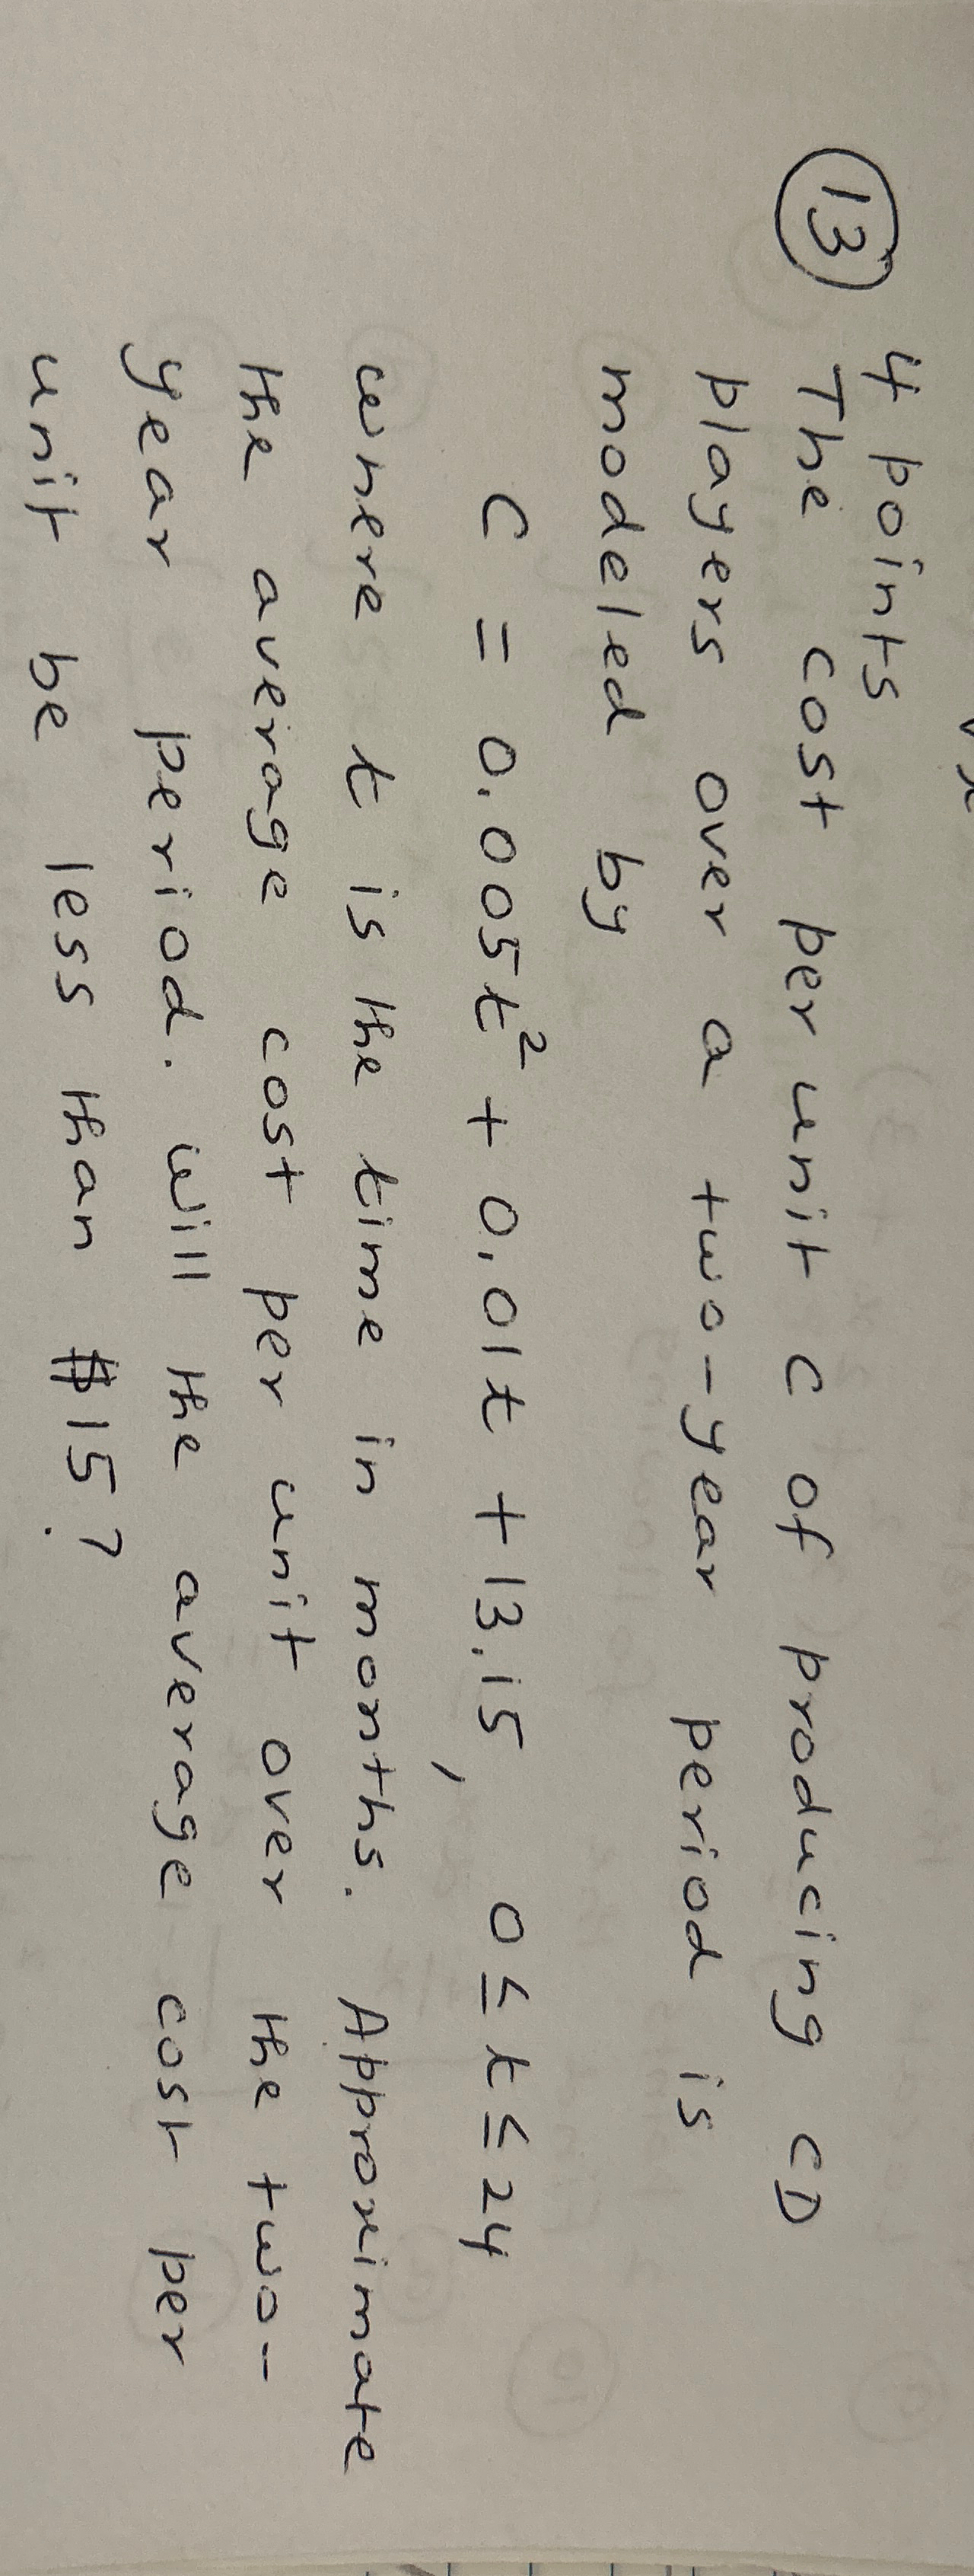 4 points
13 The cost per unit C of producing CD
players over a two-year period is
modeled by
C = 0.005t² + 0.01t + 13.15, 0 ≤ t ≤ 24
where t is the time in months. Approximate
the average cost per unit over the two-
year period. Will the average cost per
unit be less than $15?